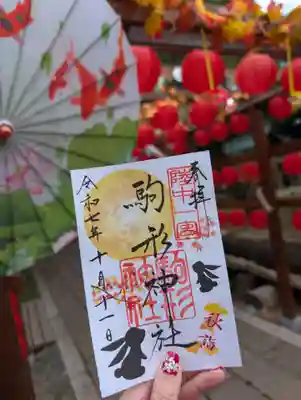 奉拝
陸中一國
駒形神社
駒形神社
令和七年十月十一日
秋詣